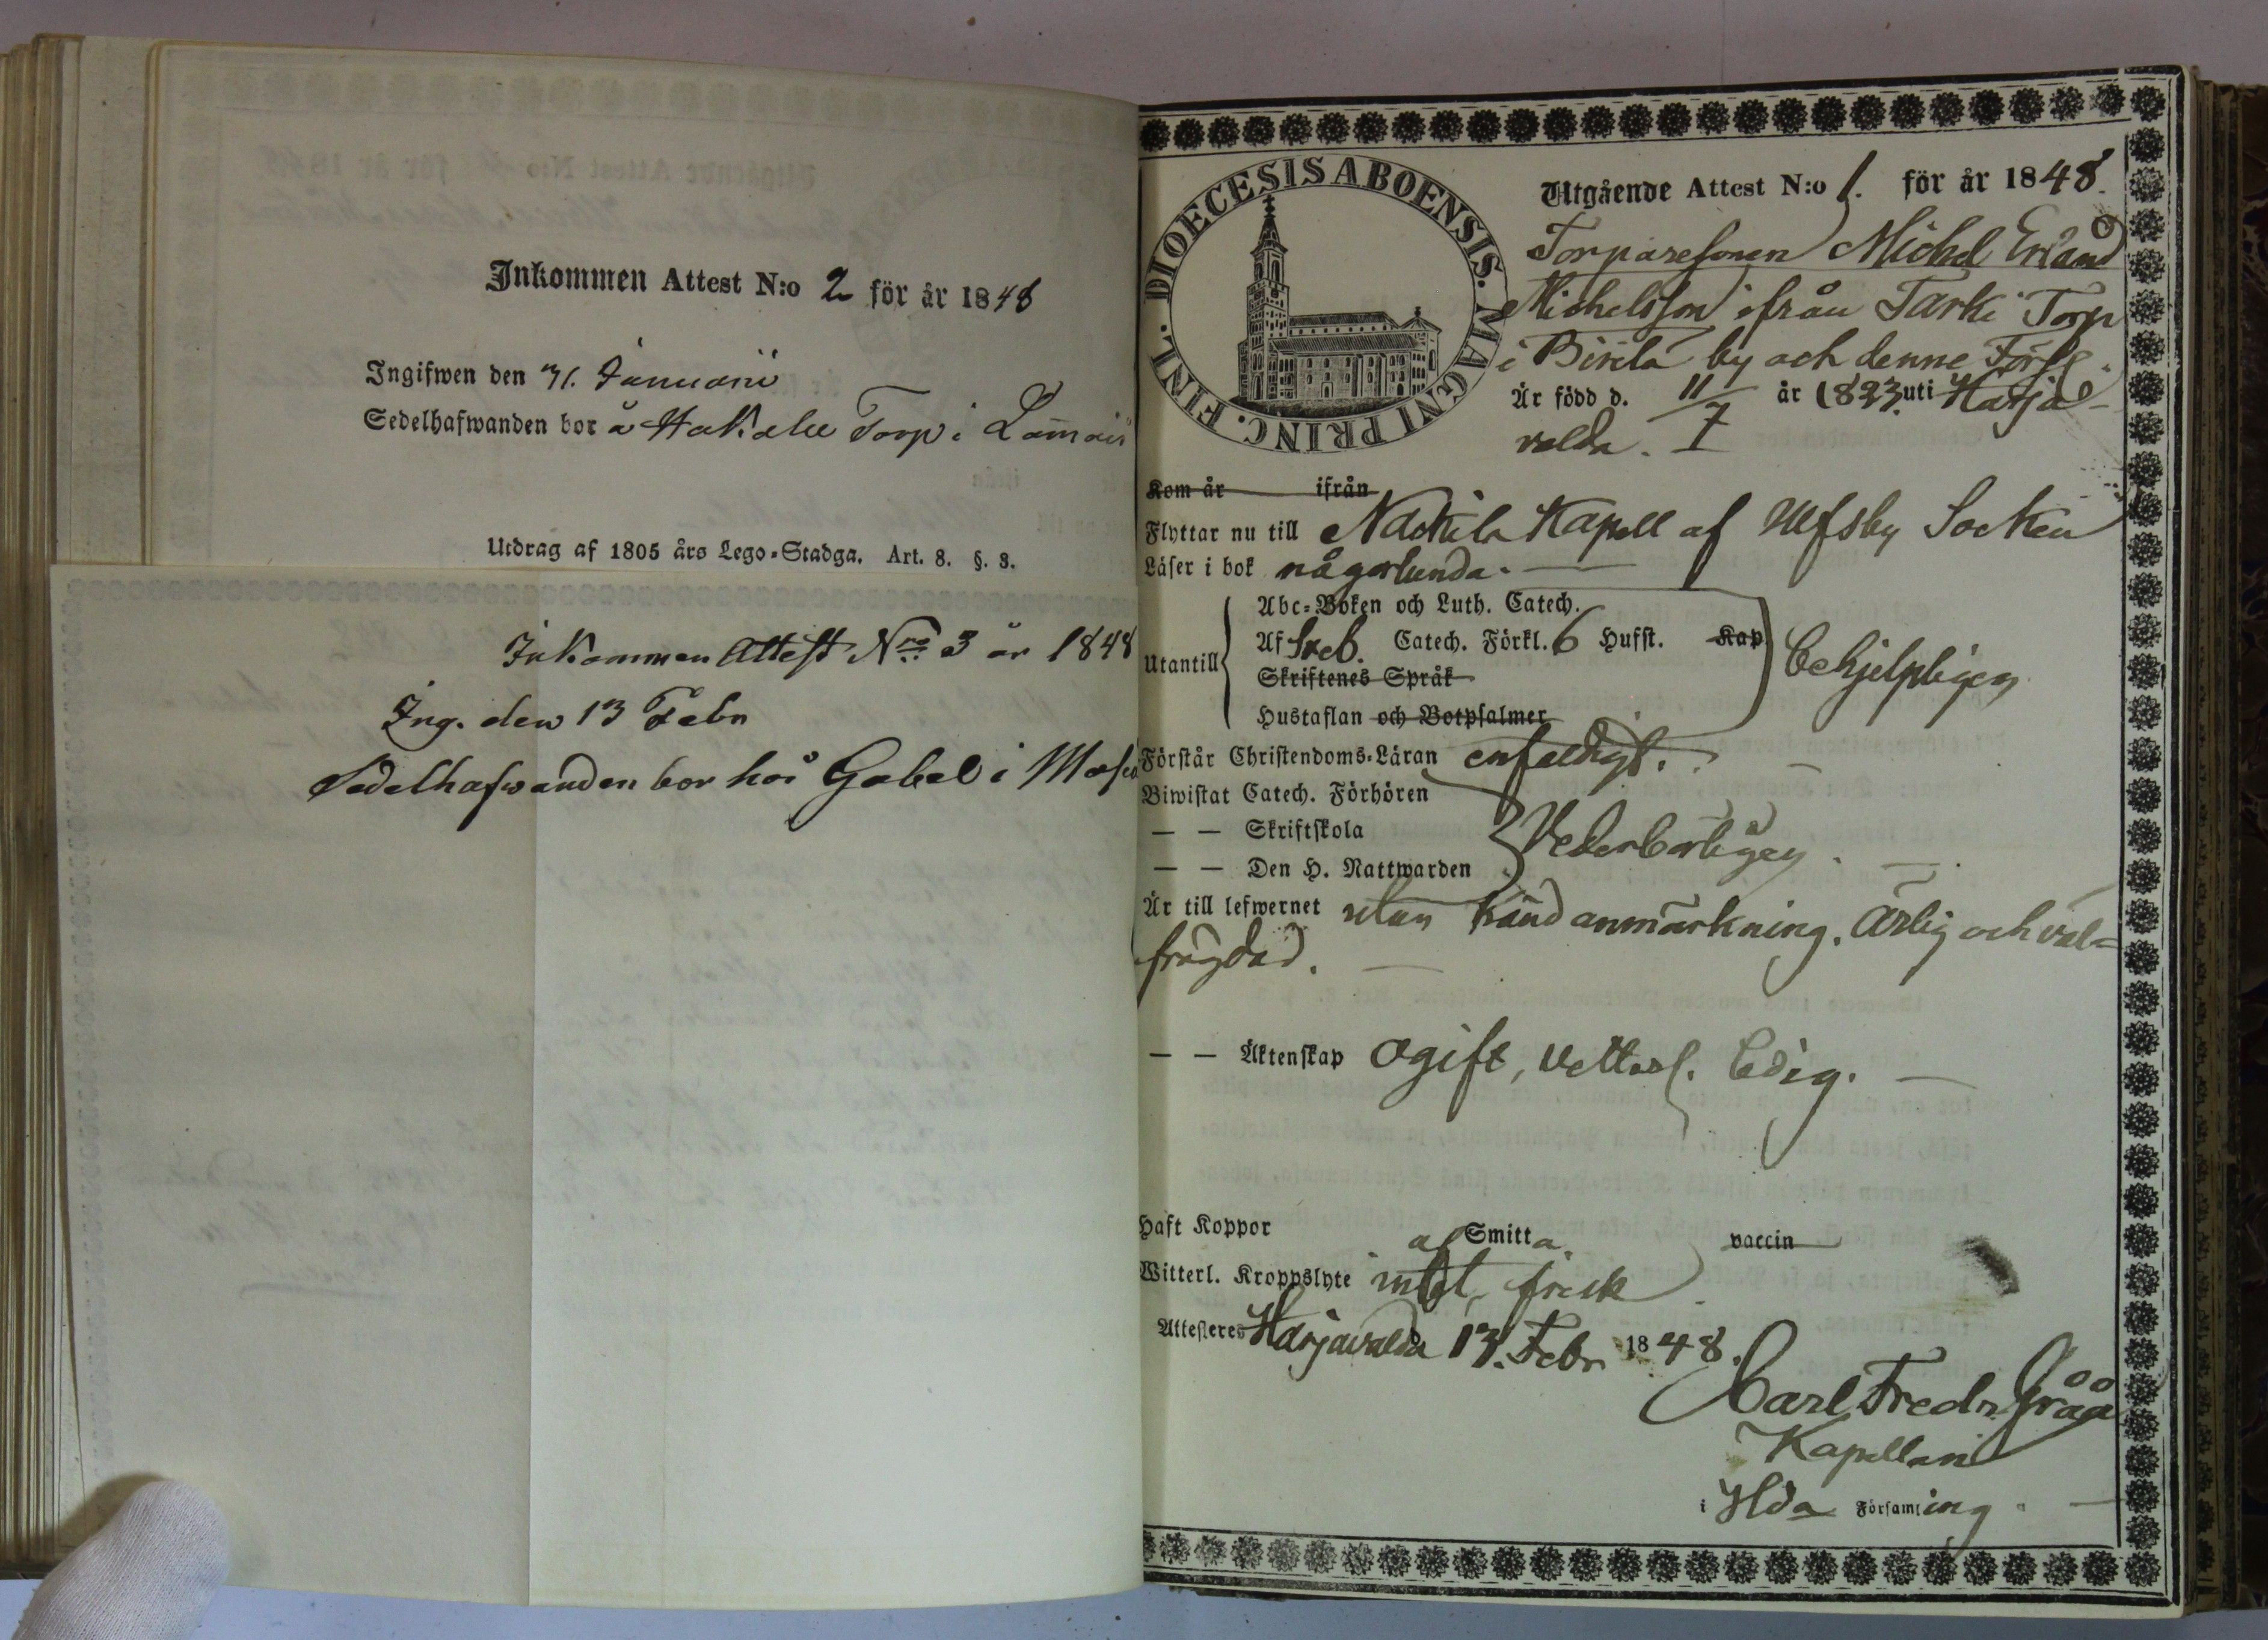 Inkommen Attest N:o 2 för år 1848
Ingifwen den 31. Januarii
Sedelhafwanden bor å Torp i
Utdrag af 1805 års Lego-Stadga. Art. 8. §. 3.
Inkommen Attest Nro 3 år 1848
Ing. den 13 Febr
Sedelhafwanden bor hos Gabel i
DIOECESIS ABOENSIS. MAGNI PRINC. FINL.
Utgående Attest N:o 1. för år 1848.
Torparesonen Michel Erland
Michelsson ifrån Tarki Torp
i by och denne Förs.
Är född d. 11/7 år 1823. uti Harja-
valda.
Kom år ifrån
Flyttar nu till Nackila Kapell af Ulfsby Socken
Läser i bok någorlunda.
Utantill
Abc-Boken och Luth. Catech.
Af Sveb. Catech. Förkl. 6 Hufst. Kap.
Skriftenes Språk
Hustaflan och Botpsalmer
behjelpligen
Förstår Christendoms-Läran enfaldigt.
Biwistat Catech. Förhören
— — Skriftskola
— — Den H. Nattwarden
Vederbörligen.
Är till lefwernet utan känd anmärkning. Ärlig och väl-
frägdad.
— — Äktenskap ogift, vetterl. ledig.
Haft Koppor af Smitta. vaccin
Witterl. Kroppslyte intet, frisk
Attesteres Harjavalda 13. Febr. 1848.
Carl Fredr. Gråå
Kapellan
i Hda Församling.